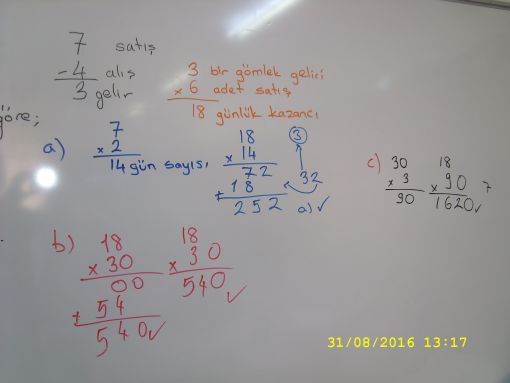 7 satış
- 4 alış
3 gelir
3 bir gömlek geliri
x 6 adet satış
18 günlük kazancı
göre;
a)
7
x 2
14 gün sayısı
18
x 14
72
+ 18
252
3
32
a) ✓
b)
18
x 30
00
+ 54
540 ✓
18
x 30
540 ✓
c)
30
x 3
90
18
x 90
1620 ✓
7
31/08/2016 13:17